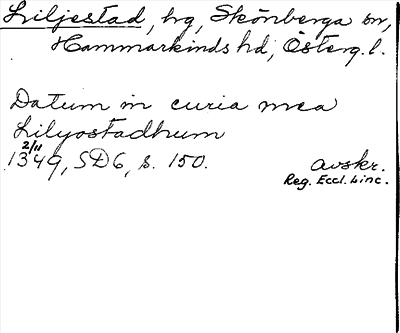 Liljestad, hg, Skönberga sn,
Hammarkinds hd, Österg. l.
Datum in curia mea
Lilyostadhum
2/11
1349, SD6, s. 150.
avskr.
Reg. Eccl. Linc.